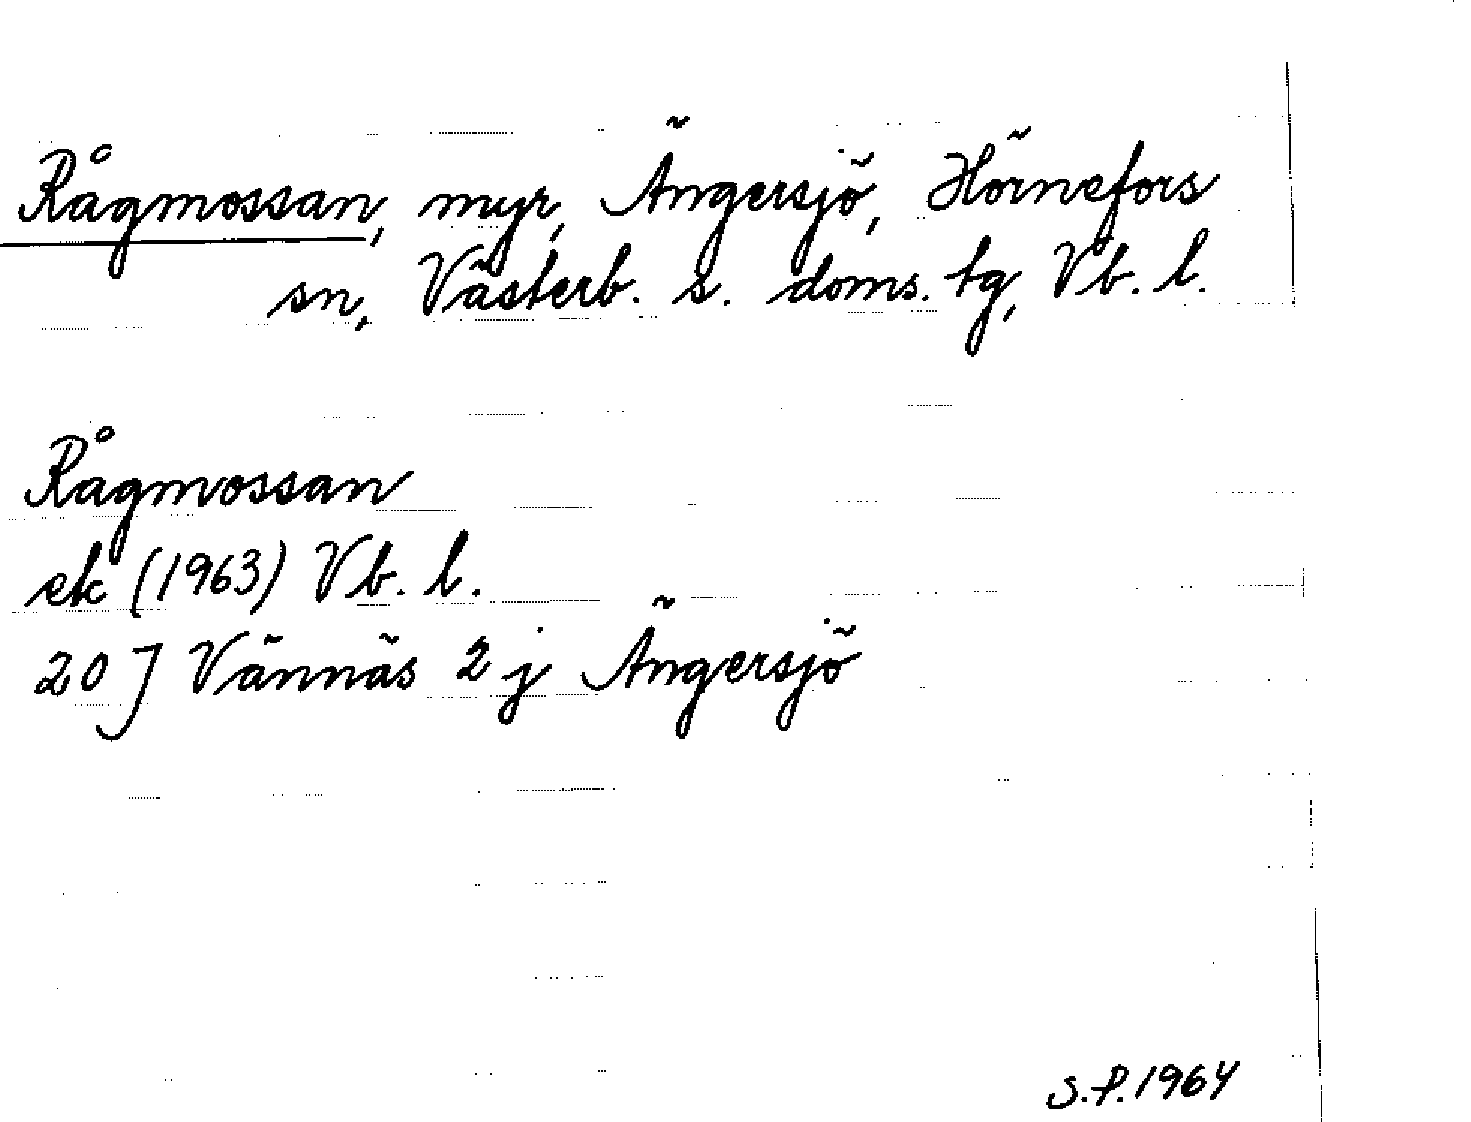 Rågmossan, myr, Ängersjö, Hörnefors
sn, Västerb. s. doms. tg, Vb. l.
Rågmossan
ek (1963) Vb. l.
20 J Vännäs 2 j Ängersjö
S.P. 1964